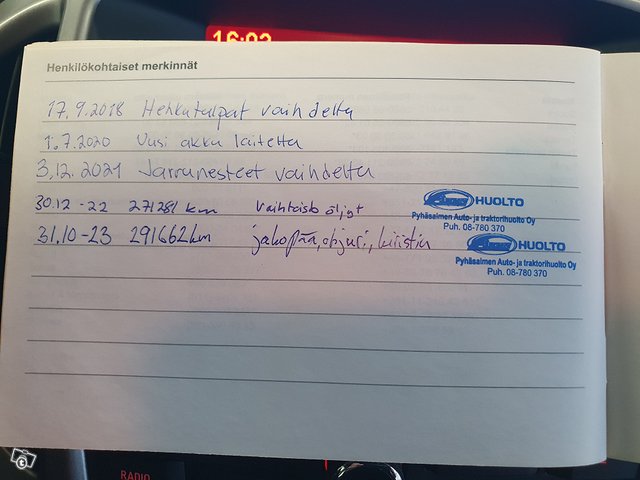 16:02
Henkilökohtaiset merkinnät
17.9.2018 Hehkutulpat vaihdettu
1.7.2020 Uusi akku laitettu
3.12.2021 Jarrunesteet vaihdettu
30.12 -22 271281 km Vaihteisto öljyt HUOLTO
Pyhäsalmen Auto- ja traktorihuolto Oy
Puh. 08-780 370
31.10-23 291662km jakopää, ohjuri, kiristin HUOLTO
Pyhäsalmen Auto- ja traktorihuolto Oy
Puh. 08-780 370
RADIO